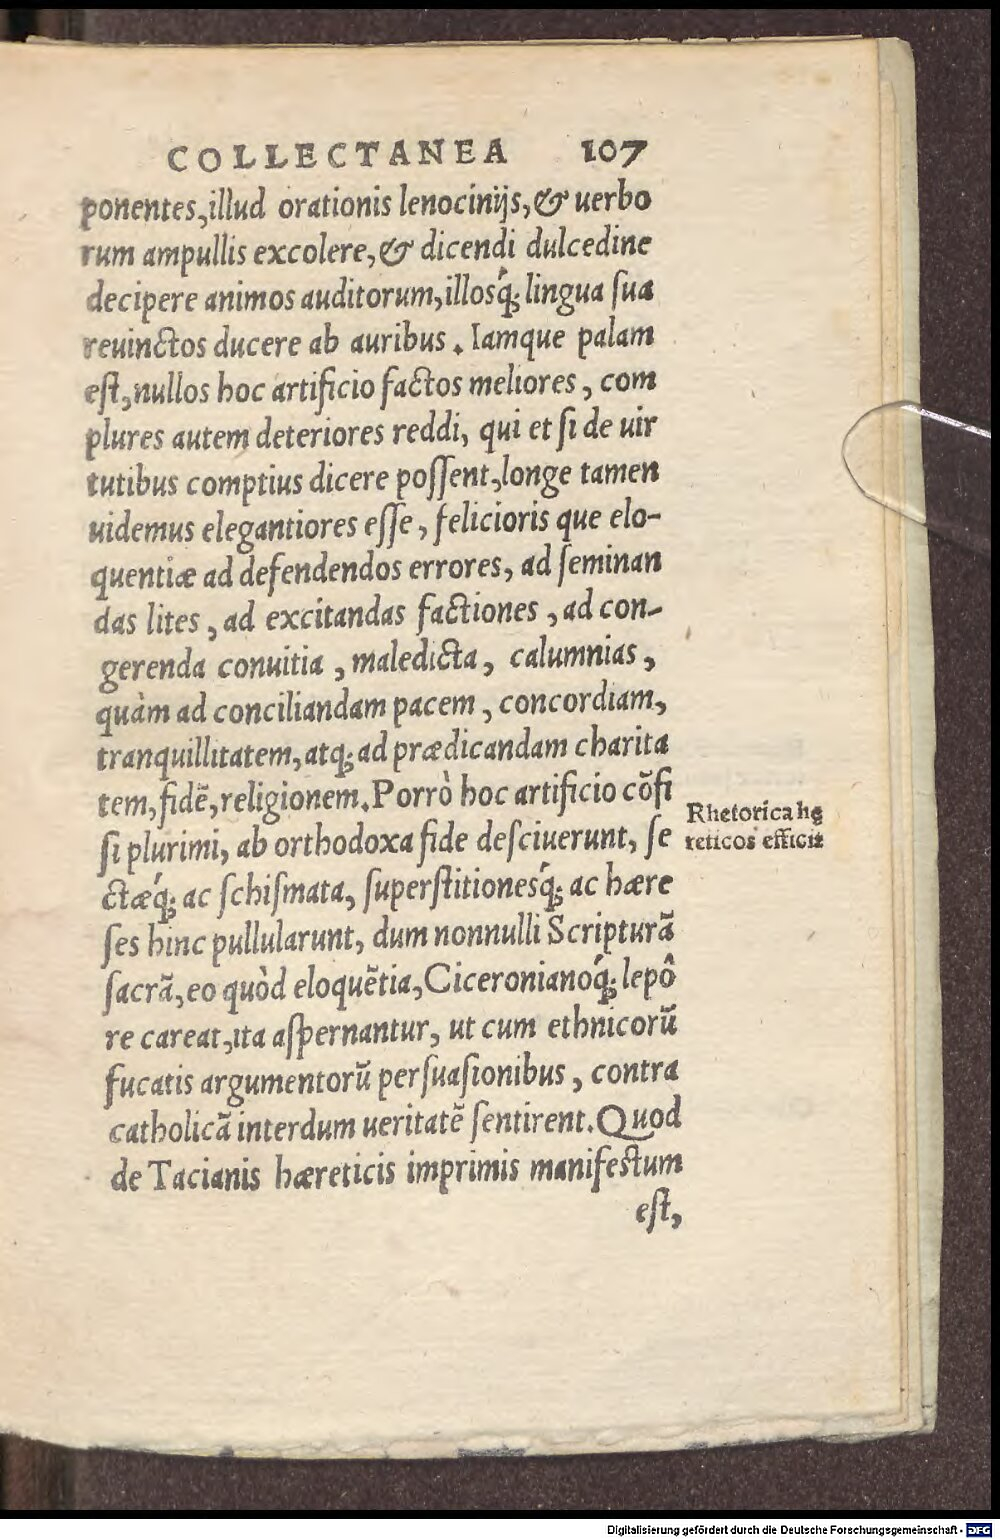 COLLECTANEA 107
ponentes, illud orationis lenocinijs, & uerbo
rum ampullis excolere, & dicendi dulcedine
decipere animos auditorum, illosq́; lingua ſua
reuinctos ducere ab auribus. Iamque palam
eſt, nullos hoc artificio factos meliores, com
plures autem deteriores reddi, qui et ſi de uir
tutibus comptius dicere poſſent, longe tamen
uidemus elegantiores eſſe, felicioris que elo-
quentiæ ad defendendos errores, ad ſeminan
das lites, ad excitandas factiones, ad con-
gerenda conuitia, maledicta, calumnias,
quàm ad conciliandam pacem, concordiam,
tranquillitatem, atq; ad prædicandam charita
tem, fidẽ, religionem. Porrò hoc artificio cõfi
ſi plurimi, ab orthodoxa fide deſciuerunt, ſe
ctæq́; ac ſchiſmata, ſuperſtitionesq́; ac hære
ſes hinc pullularunt, dum nonnulli Scripturã
ſacrã, eo quòd eloquẽtia, Ciceronianoq́; lepô
re careat, ita aſpernantur, ut cum ethnicorũ
fucatis argumentorũ perſuaſionibus, contra
catholicã interdum ueritatẽ ſentirent. Quod
de Tacianis hæreticis imprimis manifeſtum
eſt,
Rhetorica hę
reticos efficit
Digitalisierung gefördert durch die Deutsche Forschungsgemeinschaft - DFG